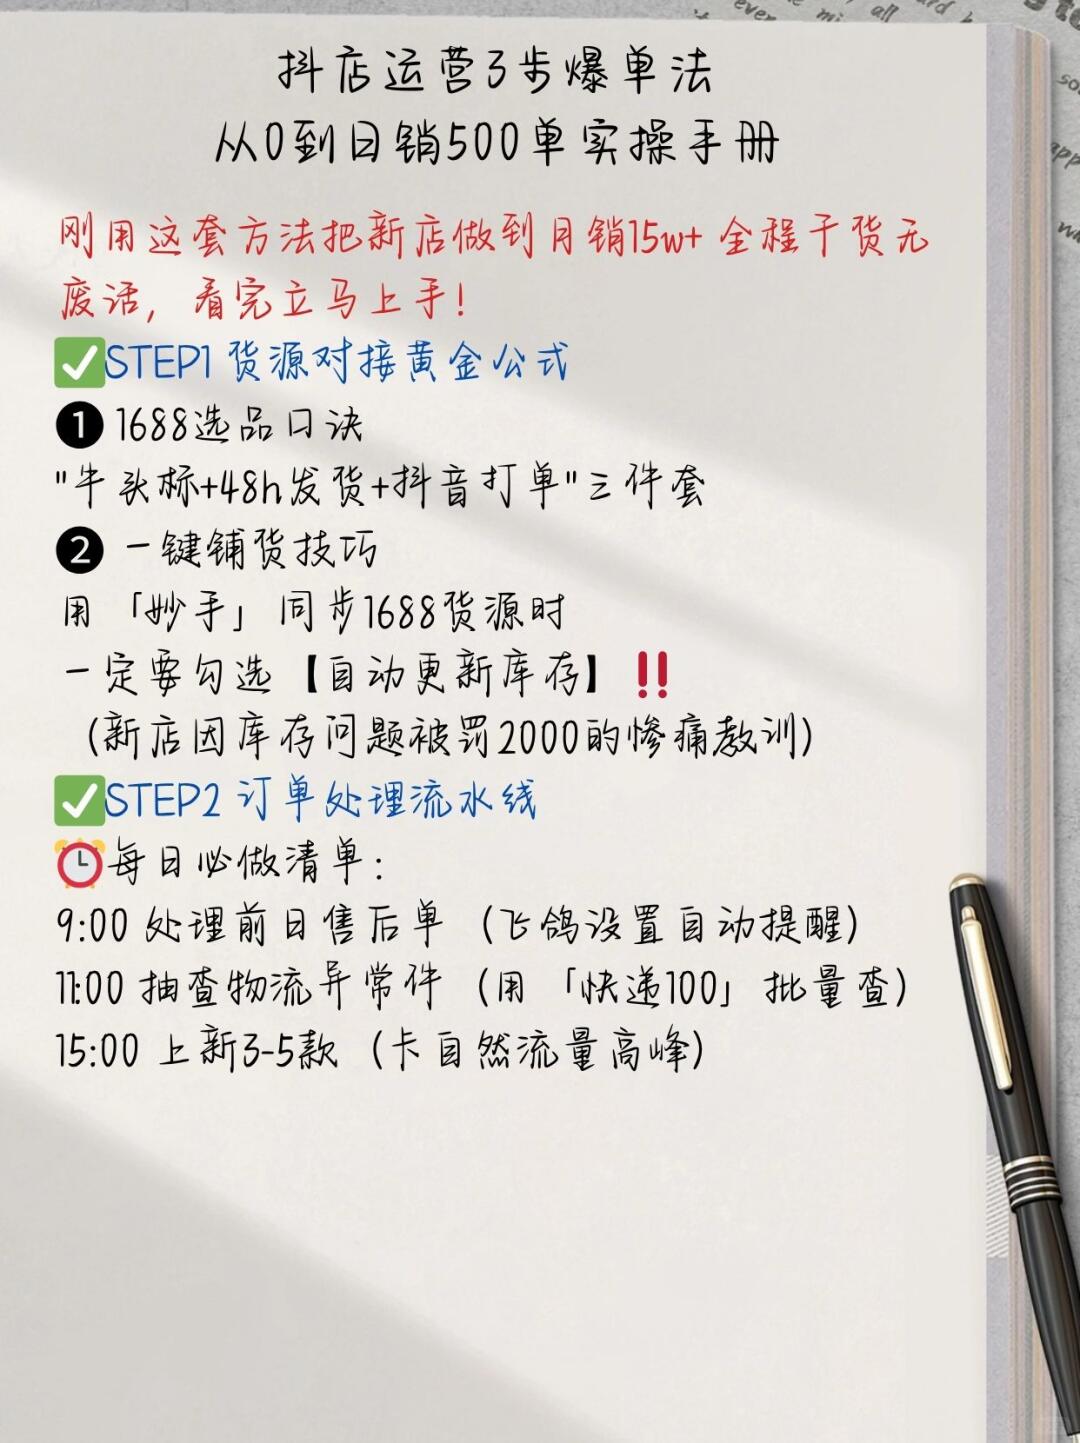 抖店运营3步爆单法
从0到日销500单实操手册
刚用这套方法把新店做到月销15w+ 全程干货无
废话，看完立马上手！
✅STEP1 货源对接黄金公式
❶ 1688选品口诀
"牛头标+48h发货+抖音打单"三件套
❷ 一键铺货技巧
用「妙手」同步1688货源时
一定要勾选【自动更新库存】‼️
（新店因库存问题被罚2000的惨痛教训）
✅STEP2 订单处理流水线
⏰每日必做清单：
9:00 处理前日售后单（飞鸽设置自动提醒）
11:00 抽查物流异常件（用「快递100」批量查）
15:00 上新3-5款（卡自然流量高峰）